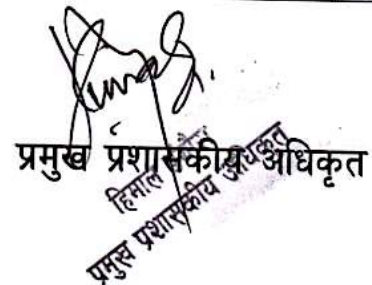 प्रमुख प्रशासकीय अधिकृत
हिमाल
प्रमुख प्रशासकीय अधिकृत